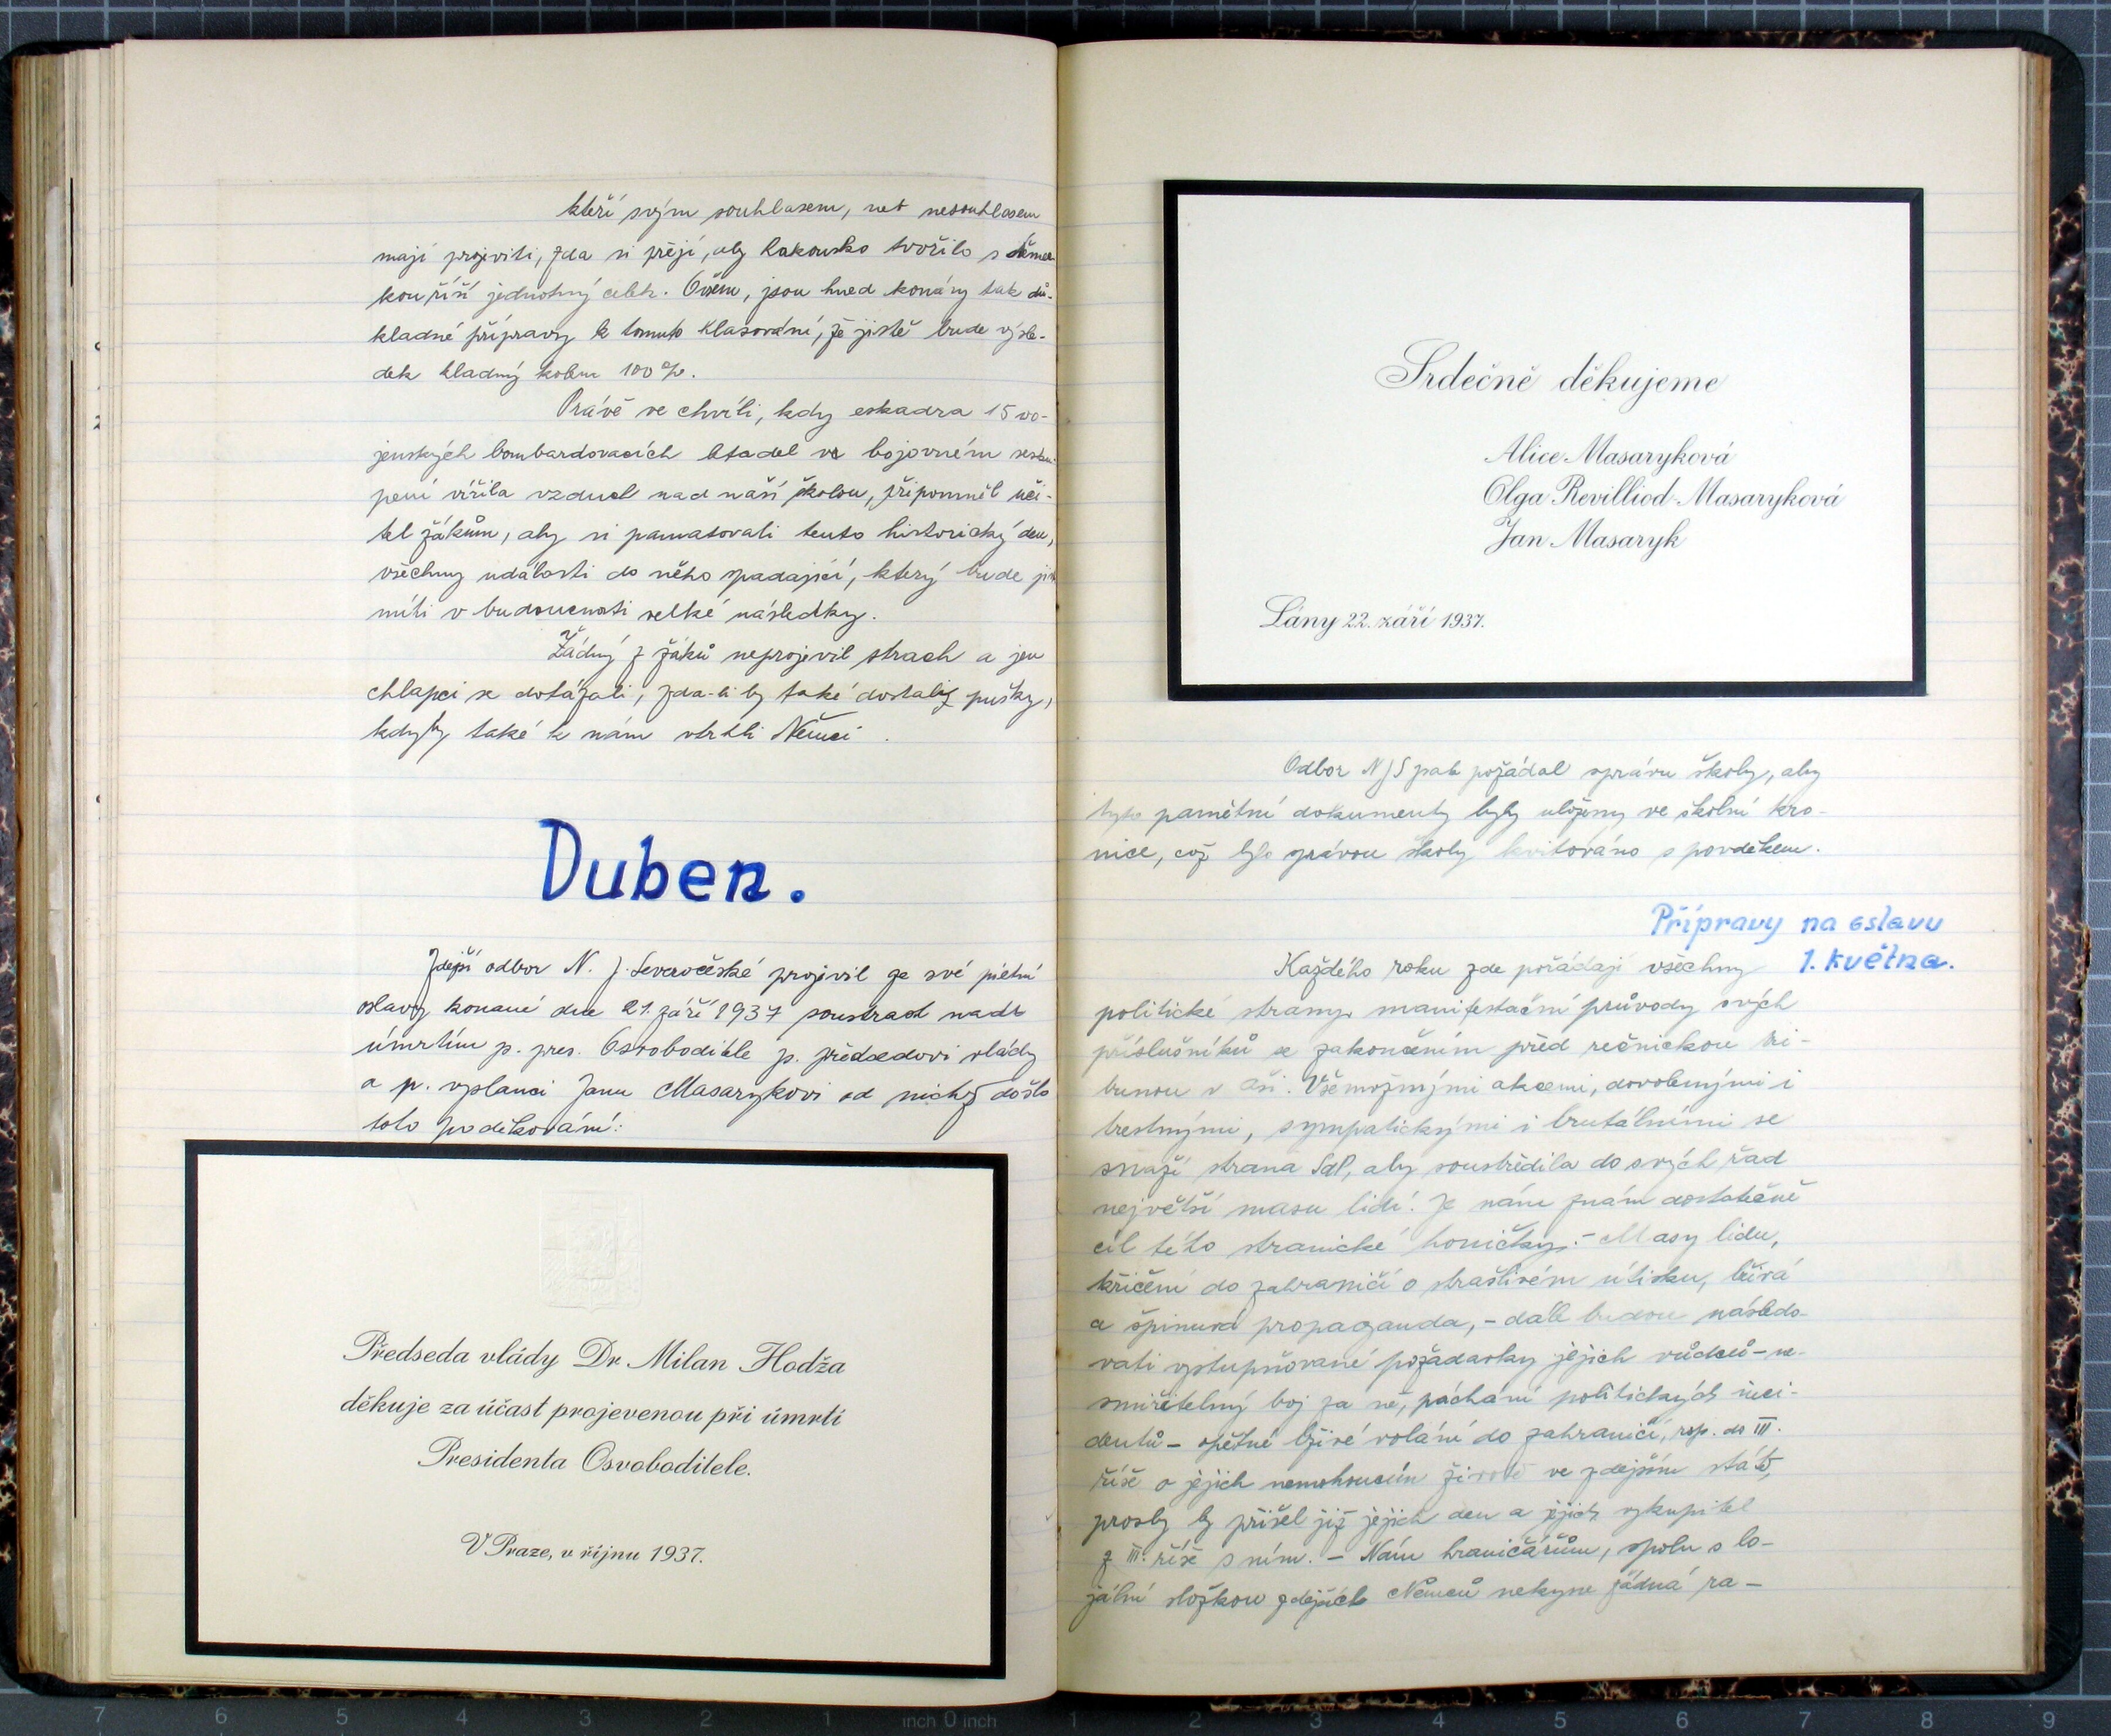 kteří svým souhlasem, neb nesouhlasem
mají projeviti, zda si přejí, aby Rakousko tvořilo s německou
kou říší jednotný celek. Ovšem, jsou hned konány tak dů-
kladné přípravy k tomuto hlasování, že jistě bude výsle-
dek kladný kolem 100%.
Právě ve chvíli, kdy eskadra 15 vo-
jenských bombardovacích letadel ve bojovném sesku-
pení vířila vzduch nad naší školou, připomněl uči-
tel žákům, aby si pamatovali tento historický den,
všechny události do něho spadající, který bude jistě
míti v budoucnosti velké následky.
Žádný z žáků neprojevil strach a jen
chlapci se dotázali, zda-li by také dostali pušky,
kdyby také k nám vtrhli Němci.
Duben.
Zdejší odbor N. J. Severočeské projevil ze své pietní
oslavy konané dne 21. září 1937 soustrast nade
úmrtím p. pres. Osvoboditele p. předsedovi vlády
a p. vyslanci Janu Masarykovi od nichž došlo
toto poděkování:
Předseda vlády Dr. Milan Hodža
děkuje za účast projevenou při úmrtí
Presidenta Osvoboditele.
V Praze, v říjnu 1937.
Srdečně děkujeme
Alice Masaryková
Olga Revilliod-Masaryková
Jan Masaryk
Lány 22. září 1937.
Odbor NJS pak požádal správu školy, aby
tyto pamětní dokumenty byly uloženy ve školní kro-
nice, což bylo správou školy kvitováno s povděkem.
Přípravy na oslavu
1. května.
Každého roku zde pořádají všechny
politické strany manifestační průvody svých
příslušníků se zakončením před rečnickou tri-
bunou v Aši. Všemožnými akcemi, dovolenými i
trestnými, sympatickými i brutálními se
snaží strana SdP, aby soustředila do svých řad
největší masu lidí. Je nám znám dostatečně
cíl této stranické honičky: - Masy lidu,
křičení do zahraničí o strašlivém útisku, lživá
a špinavá propaganda, - dále budou následo-
vati vystupňované požadavky jejich vůdců - ne-
smiřitelný boj za ně, páchání politických inci-
dentů - opětné lživé volání do zahraničí, resp. do III.
říše o jejich nemohoucím životě ve zdejším státě,
prosby by přišel již jejich den a jejich vykupitel
z III. říše s ním. - Nám hraničářům, spolu s lo-
jální složkou zdejších Němců nekyne žádná ra-